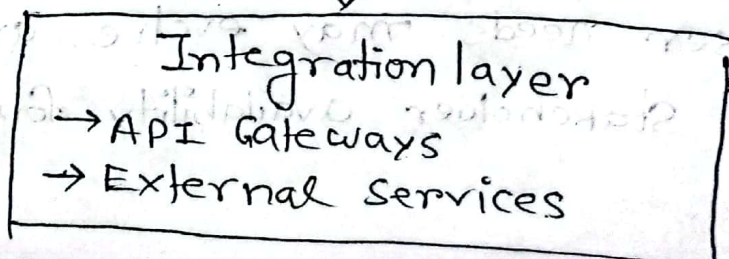 Integration layer
→ API Gateways
→ External Services